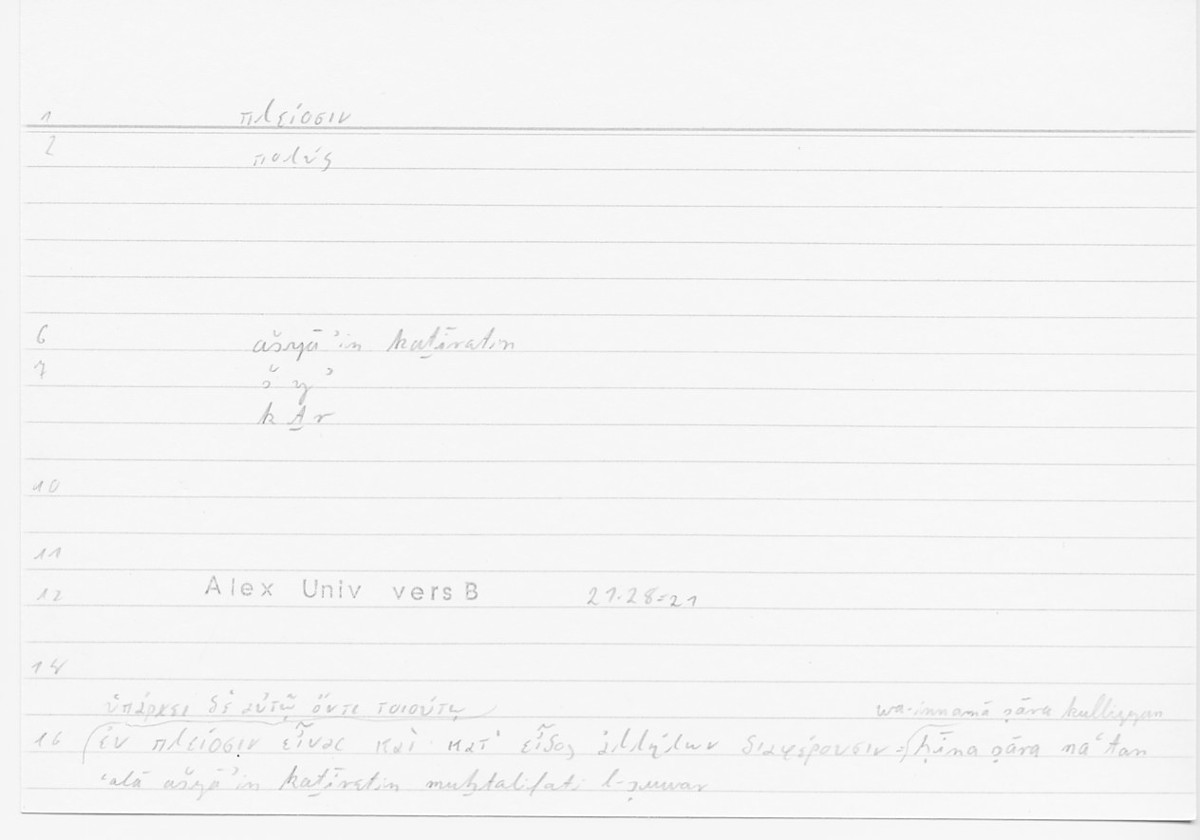 1 πλείοσιν
2 πολύς
6 ašyāʾin kaṯīratin
7 š y ʾ
k ṯ r
10
11
12 Alex Univ vers B 21.28=21
14
ὑπάρχει δὲ αὐτῷ ὄντι τοιούτῳ wa-innamā ṣāra kulliyyan
16 (ἐν πλείοσιν εἶναι καὶ κατ' εἶδος ἀλλήλων διαφέρουσιν = (ḥīna ṣāra naʿtan
ʿalā ašyāʾin kaṯīratin muḫtalifati l-ṣuwar